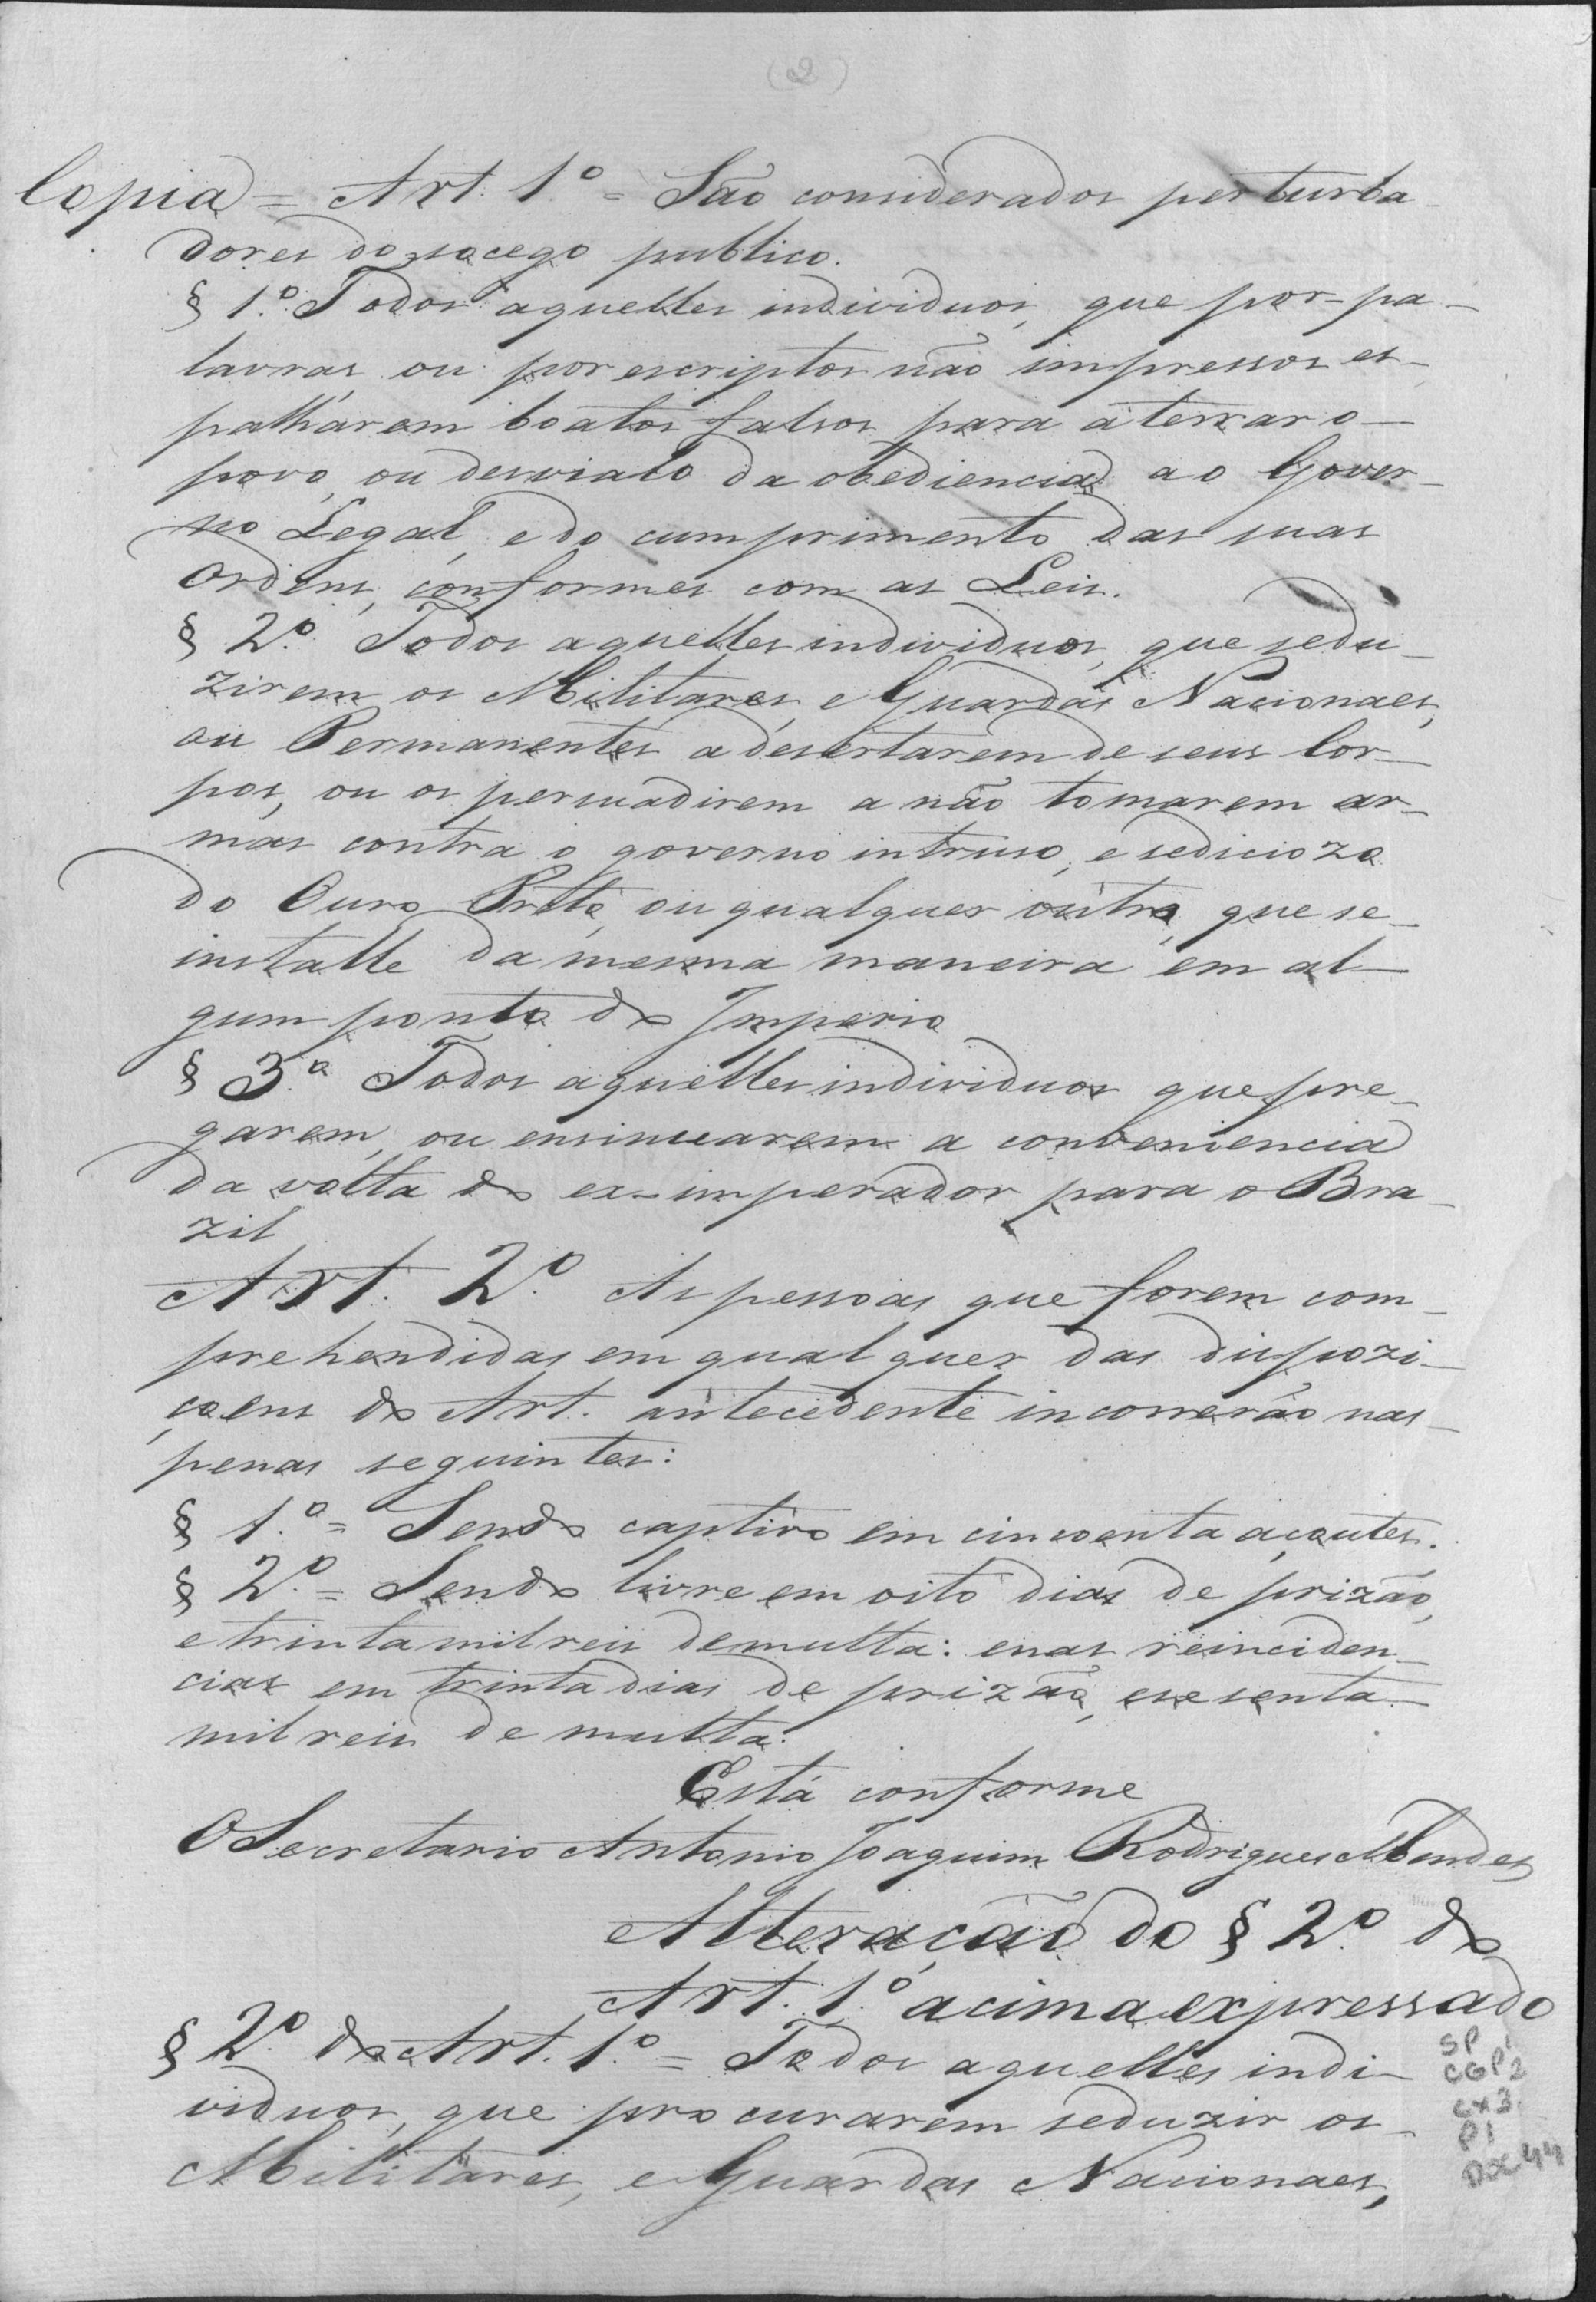 (2)
Copia = Art. 1.º = São considerados perturba-
dores do socego publico.
§ 1.º Todos aquelles individuos, que por pa-
lavras, ou por escriptos não impressos es-
palharem boatos falsos para aterrar o
povo, ou desvialo da obediencia ao Gover-
no Legal, e do cumprimento das suas
Ordens, conformes com as Leis.
§ 2.º Todos aquelles individuos, que sedu-
zirem os Militares, e Guardas Nacionaes,
ou Permanentes a desertarem de seus Cor-
pos, ou os persuadirem a não tomarem ar-
mas contra o governo intruso, e sedicioza
do Ouro Preto, ou qualquer outro, que se
installe da mesma maneira em al-
gum ponto do Imperio
§ 3.º Todos aquelles individuos que pre-
garem, ou ensinuarem a conveniencia
da volta do ex-imperador para o Bra-
zil
Art. 2.º As pessoas que forem com-
prehendidas em qualquer das dispozi-
çoens do Art. antecedente incorrerão nas
penas seguintes:
§ 1.º = Sendo captivo em cincoenta açoutes.
§ 2.º = Sendo livre em oito dias de prizão,
e trinta mil reis de multa: e nas reinciden-
cias em trinta dias de prizão, e sesenta
mil reis de multa.
Está conforme
O Secretario Antonio Joaquim Rodrigues Mendes
Alteração do § 2.º do
Art. 1.º acima expressado
§ 2.º do Art. 1.º = Todos aquelles indi-
viduos, que procurarem seduzir os
Militares, e Guardas Nacionaes,
SP
CGP1
cx 3
P1
Doc 44